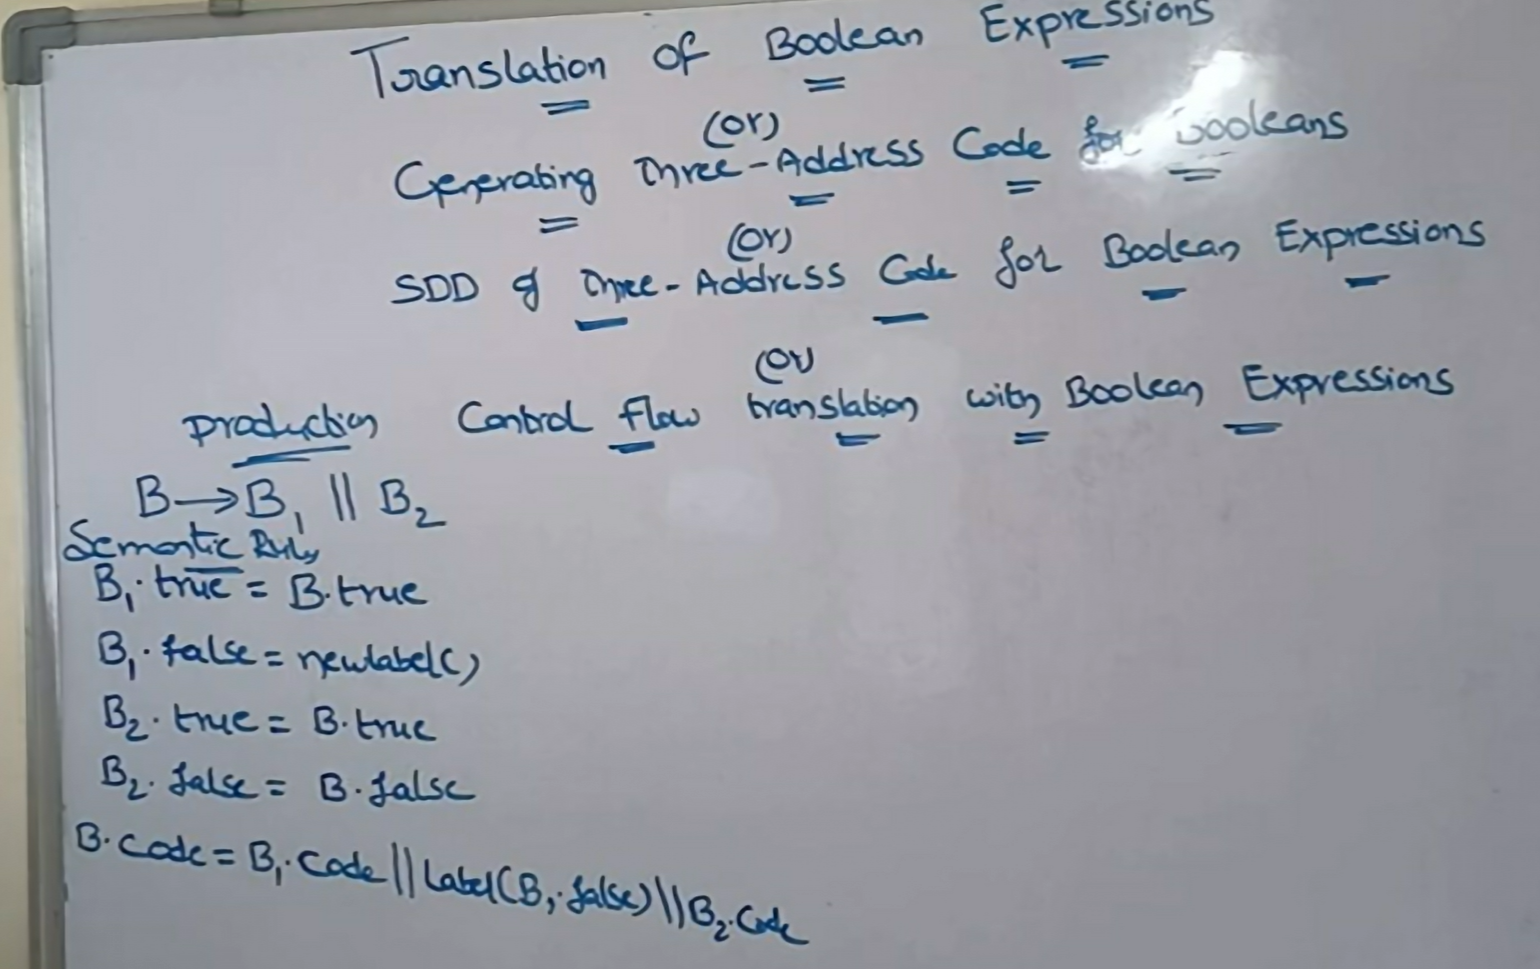 Translation of Boolean Expressions
(or)
Generating Three-Address Code for Booleans
(or)
SDD of Three-Address Code for Boolean Expressions
(or)
production Control flow translation with Boolean Expressions
B→B₁ || B₂
Semantic Rules
B₁.true = B.true
B₁.false = newlabel()
B₂.true = B.true
B₂.false = B.false
B.code = B₁.code || Label(B₁.false) || B₂.code